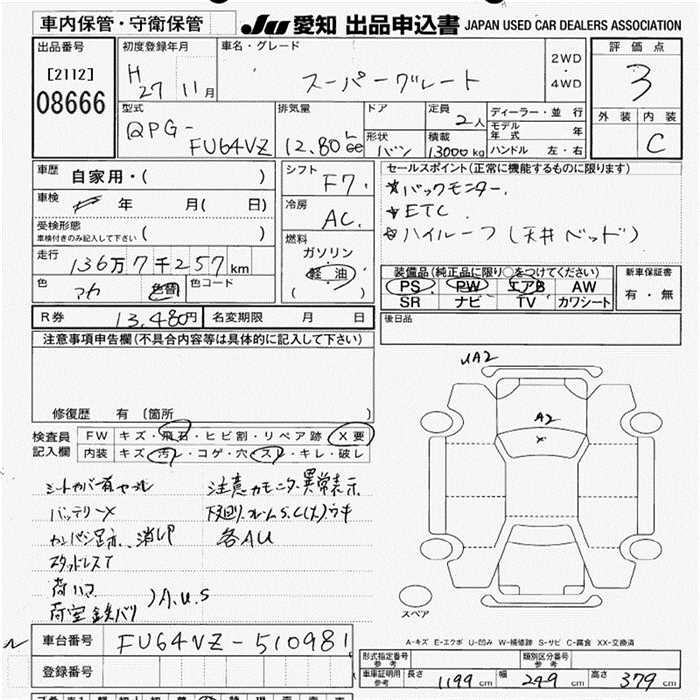 車内保管・守衛保管
JU 愛知 出品申込書 JAPAN USED CAR DEALERS ASSOCIATION
出品番号
[2112]
08666
初度登録年月
H 27 11月
車名・グレード
スーパーグレート
2WD
・
4WD
評価点
3
外装 内装
C
型式
QPG-
FU64VZ
排気量
12.80 L
cc
ドア
形状
バン
定員
2人
積載
13000kg
ディーラー・並行
モデル年式 年
ハンドル 左・右
車歴
自家用・( )
車検
年 月( 日)
受検形態
車検付きのみ記入して下さい ( )
走行
136万7千257km
色
アカ
色替
色コード
シフト
F7.
冷房
AC.
燃料
ガソリン
軽油
( )
セールスポイント(正常に機能するものに限ります)
☆バックモニター.
☆ETC
☆ハイルーフ(天井ベッド)
装備品(純正品に限り○をつけてください)
PS PW エアB AW
SR ナビ TV カワシート
新車保証書
有・無
R券 13,480円 名変期限 月 日
後日品
注意事項申告欄(不具合内容等は具体的に記入して下さい)
修復歴 有 〔箇所 〕
検査員
記入欄
FW キズ・飛石・ヒビ割・リペア跡 X要
内装 キズ・汚レ・コゲ・穴・スレ・キレ・破レ
シートカバー有
バッテリーX
カンバン跡.消し
スタッドレスT
荷ハコ
荷室鉄バリ
)A.U.S
注意カモニタ異常表示
下廻り.フレームS.C(大)ウキ
各AU
A2
A2
x
スペア
A-キズ E-エクボ U-凹み W-補修跡 S-サビ C-腐食 XX-交換済
車台番号 FU64VZ-510981
登録番号
形式指定番号
参考
類別区分番号
参考
車庫証明用
参考
長さ 1199cm 幅 249cm 高さ 379cm